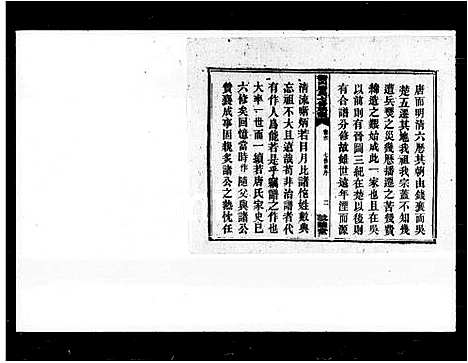 唐而明清六歷其朝由錢塘而吳
楚五遷其地我祖我宗蓋不知幾
遭兵燹之災幾歷播遷之苦幾費
締造之艱始成此一家也且在吳
以前則有晉圖三紀在楚以後則
有合譜分修故雖世遠年湮而源
清流晰炳若日月比諸佗姓數典
忘祖不大且遠哉苟非治譜者代
有作人焉能若是乎竊譜之作也
大率一世而一續若唐氏家史已
六修矣回憶當時作隨父與諸公
贊襄成事因親炙諸公之熱忱任
卷首
二